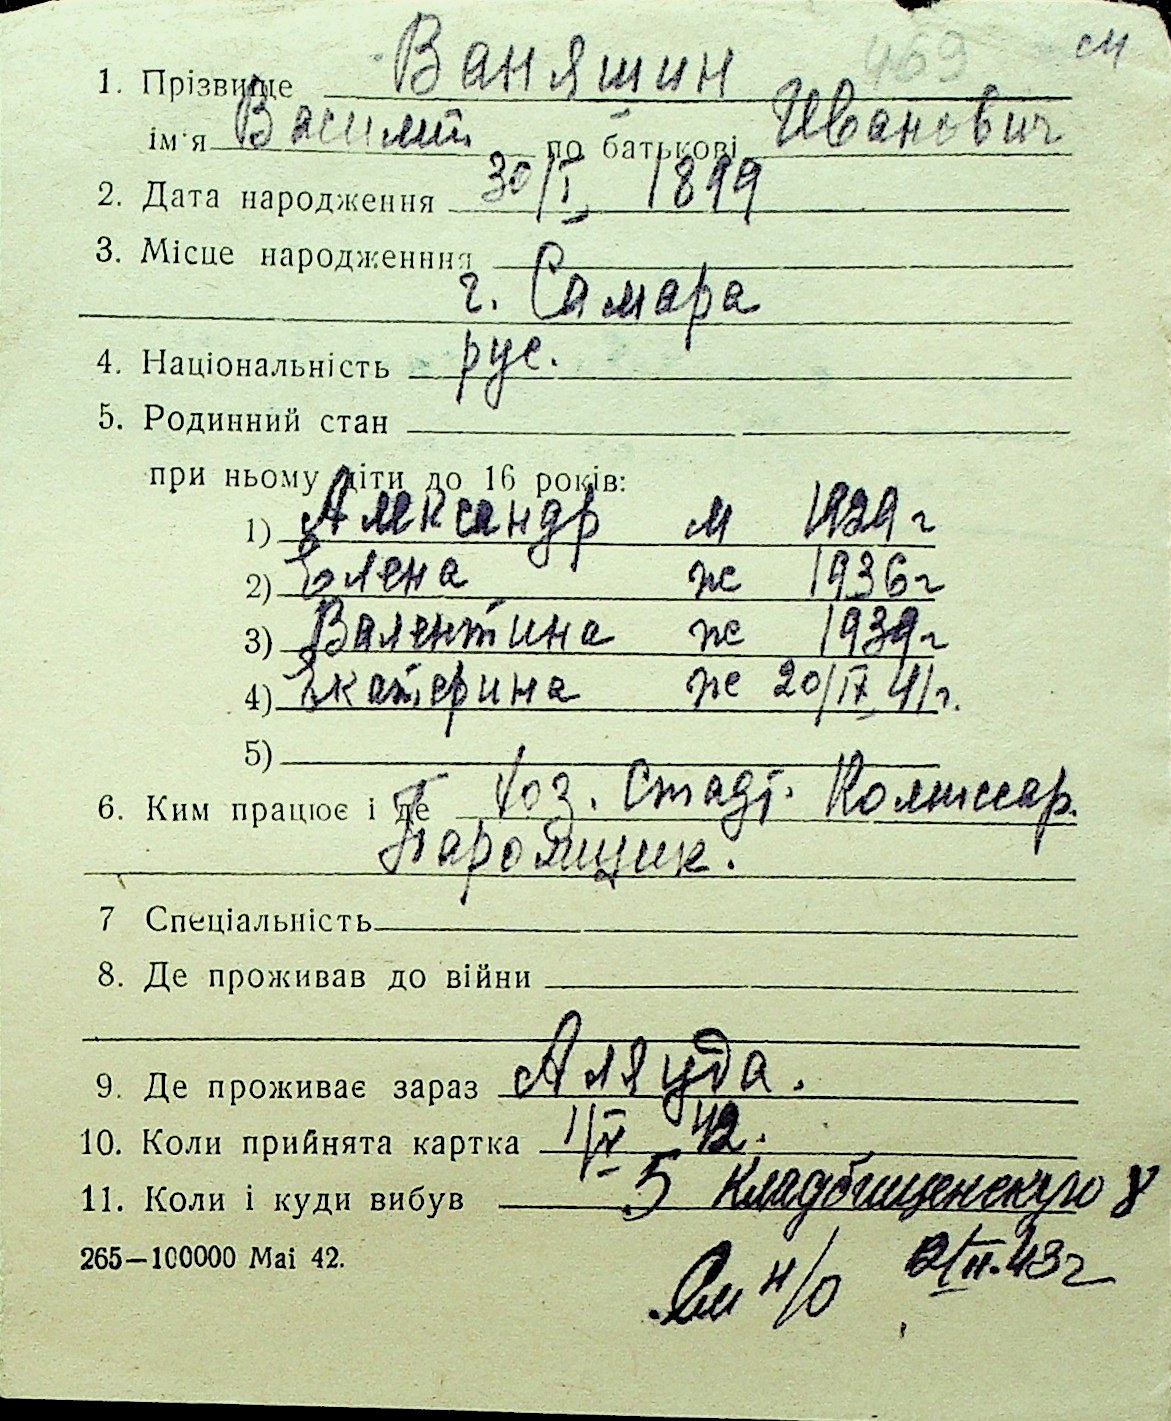 469 см
1. ПрізвищеВаняшин
ім'я Василий по батькові Иванович
2. Дата народження 30/I 1899
3. Місце народженння
г. Самара
4. Національність рус.
5. Родинний стан
при ньому діти до 16 років:
1) Александр м 1929 г
2) Елена ж 1936 г
3) Валентина ж 1939 г
4) Екатерина ж 20/IX 41 г.
5)
6. Ким працює і де Коммссар.
7 Спеціальність
8. Де проживав до війни
9. Де проживає зараз
10. Коли прийнята картка 42.
11. Коли і куди вибув 5 Кладбищенскую 8
265—100000 Маі 42.
См н/о 2/II.43 г